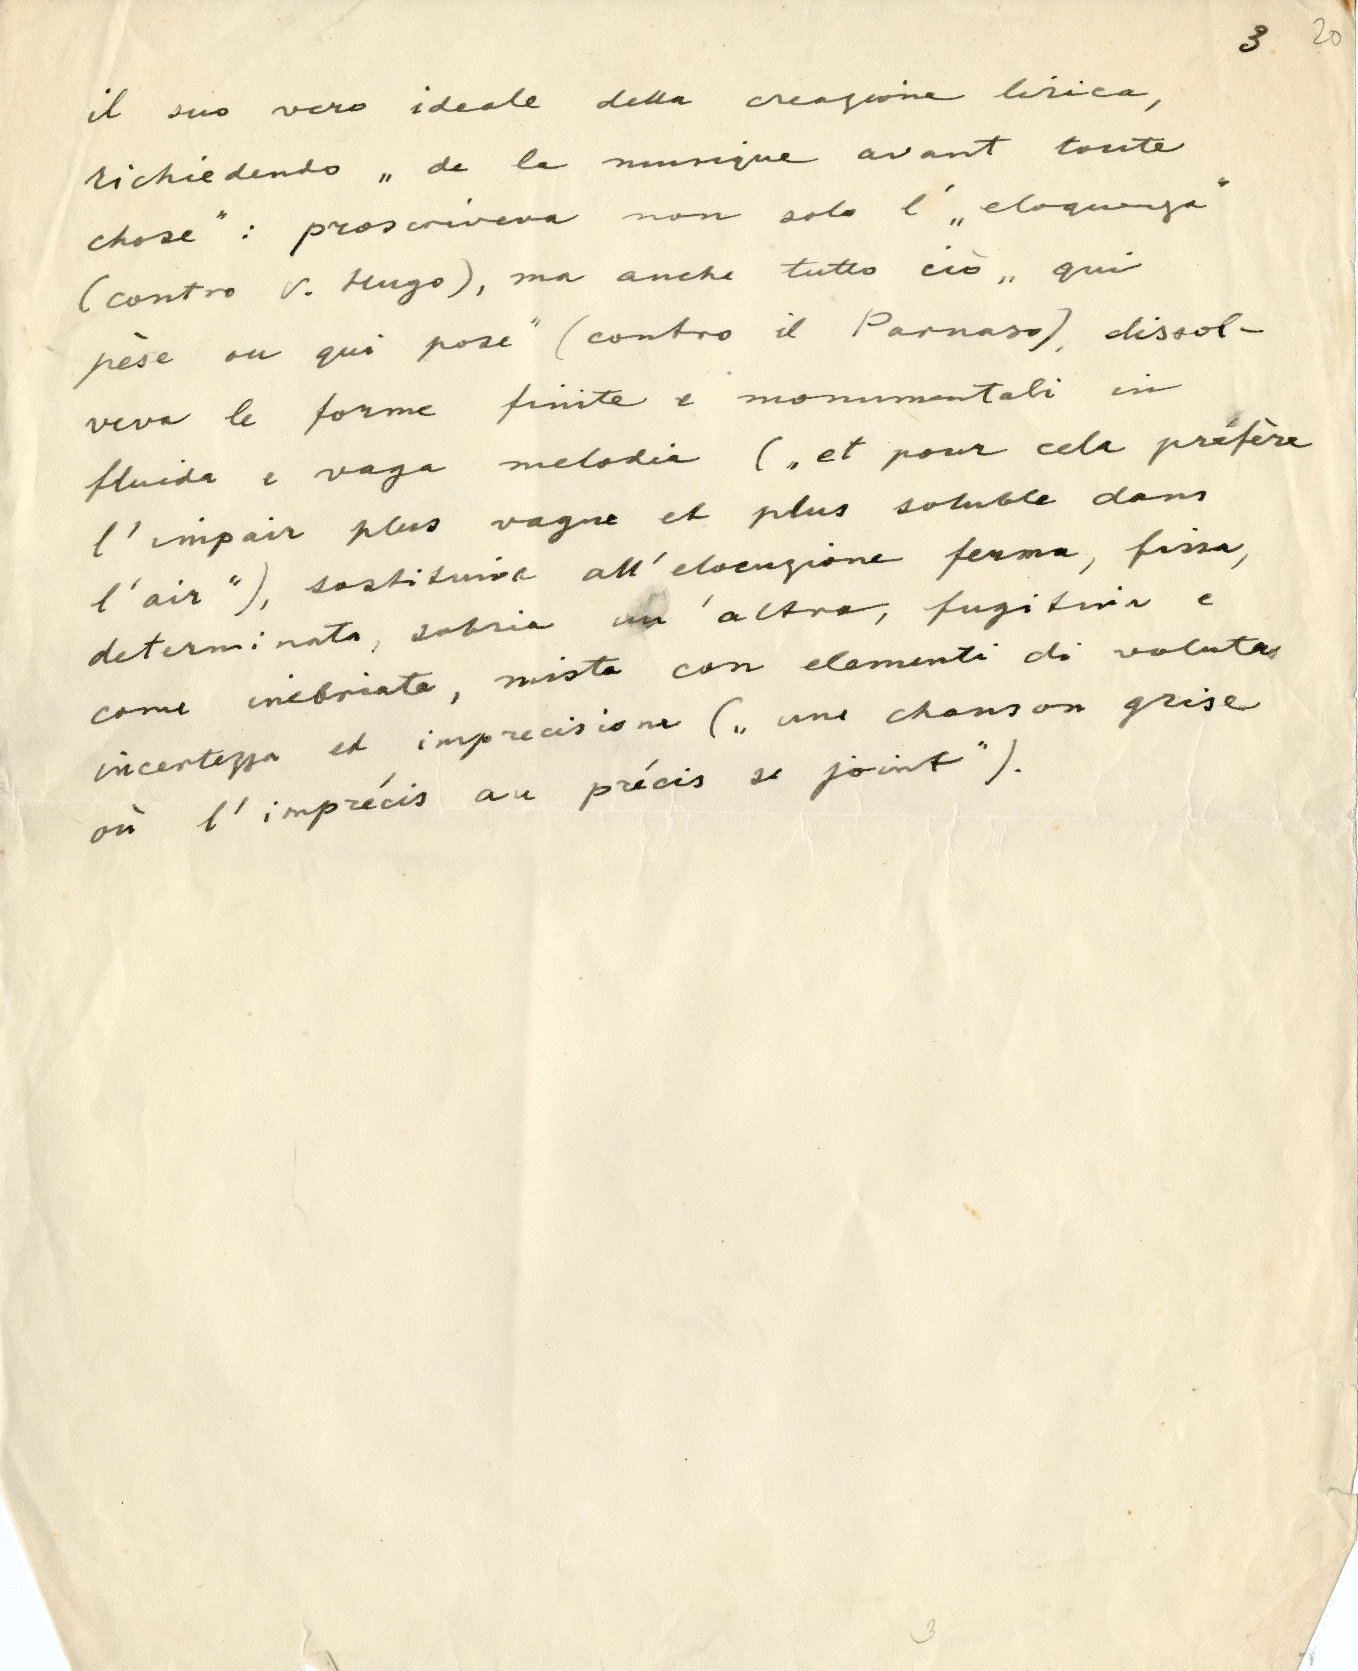 3 20
il suo vero ideale della creazione lirica,
richiedendo „de la musique avant toute
chose“: proscriveva non solo l'„eloquenza“
(contro V. Hugo), ma anche tutto ciò „qui
pèse ou qui pose“ (contro il Parnaso), dissol-
veva le forme finite e monumentali in
fluida e vaga melodia („et pour cela préfère
l'impair plus vague et plus soluble dans
l'air“), sostituiva all'elocuzione ferma, fissa,
determinata, sobria un'altra, fugitiva e
come inebriata, mista con elementi di voluta
incertezza ed imprecisione („une chanson grise
où l'imprécis au précis se joint“).
3